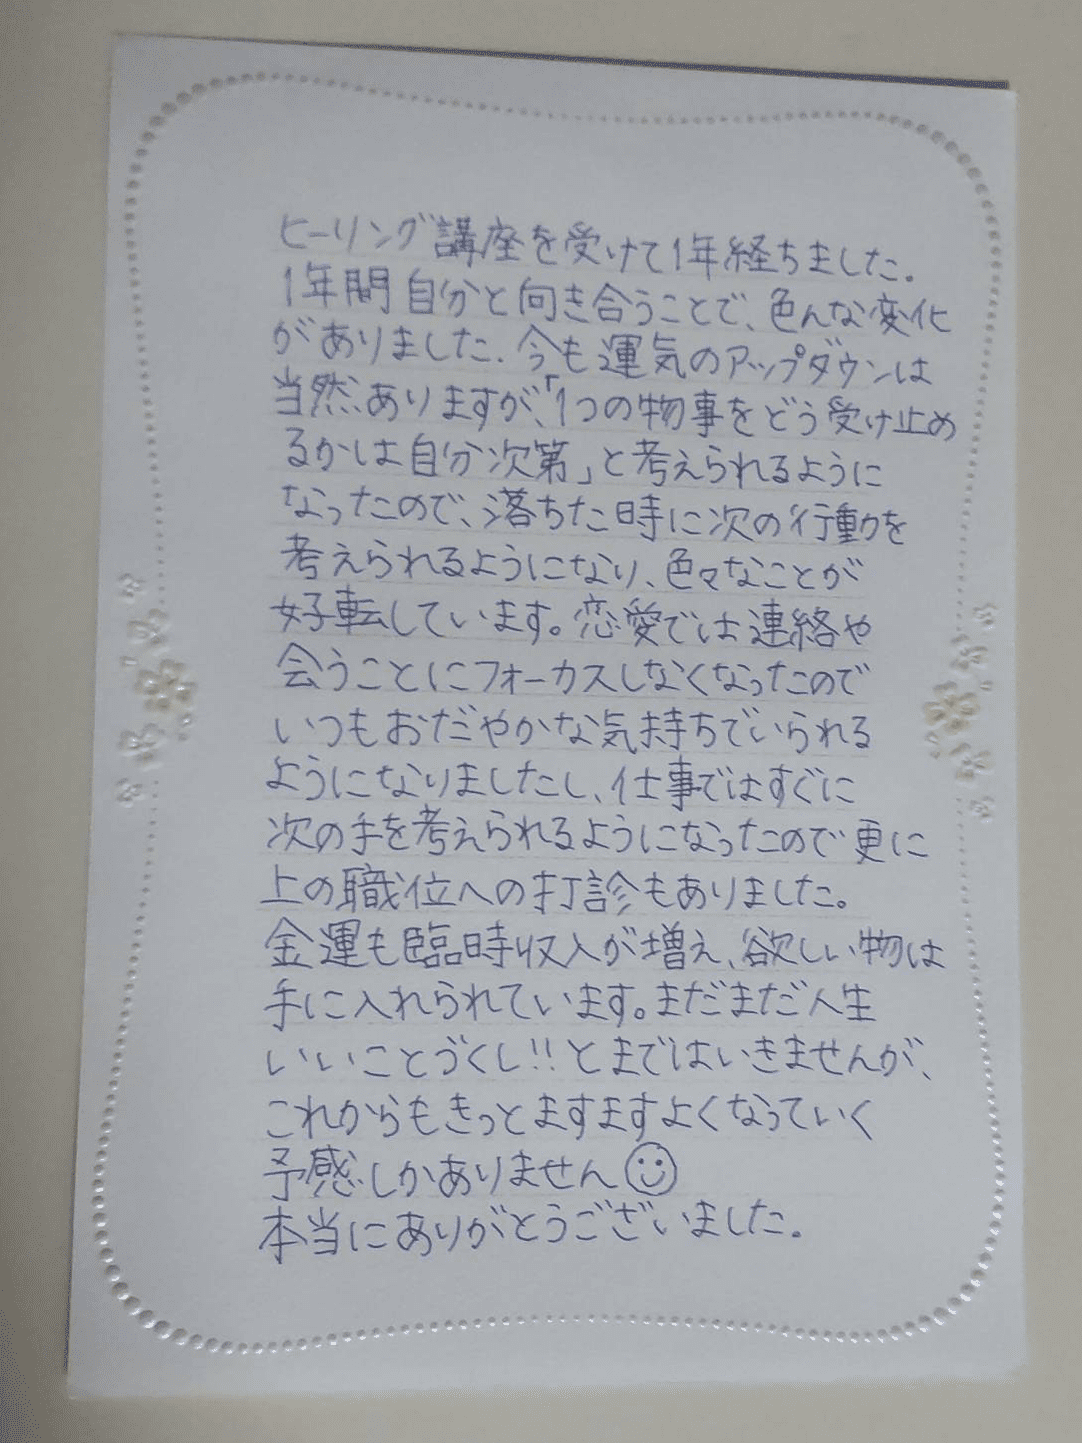 ヒーリング講座を受けて1年経ちました。
1年間自分と向き合うことで、色んな変化
がありました。今も運気のアップダウンは
当然ありますが、「1つの物事をどう受け止め
るかは自分次第」と考えられるように
なったので、落ちた時に次の行動を
考えられるようになり、色々なことが
好転しています。恋愛では連絡や
会うことにフォーカスしなくなったので
いつもおだやかな気持ちでいられる
ようになりましたし、仕事ではすぐに
次の手を考えられるようになったので更に
上の職位への打診もありました。
金運も臨時収入が増え、欲しい物は
手に入れられています。まだまだ人生
いいことづくし!!とまではいきませんが、
これからもきっとますますよくなっていく
予感しかありません☺
本当にありがとうございました。